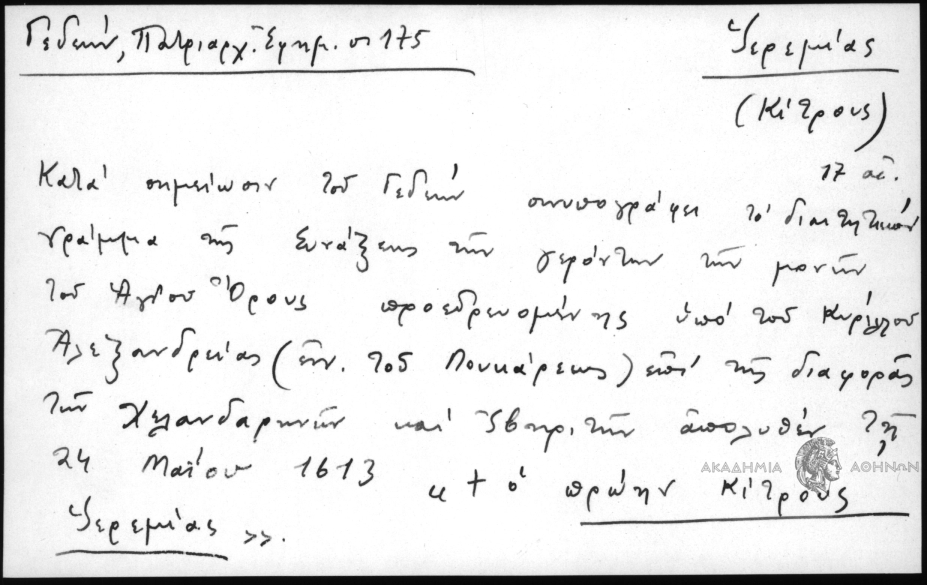 Γεδεών, Πατριαρχ. Εφημ. σ 175
Ἱερεμίας
(Κίτρους)
17 αἰ.
Κατά σημείωσιν τοῦ Γεδεών συνυπογράφει τό διαιτητικόν
γράμμα τῆς Συνάξεως τῶν γερόντων τῶν μονῶν
τοῦ Ἁγίου Ὄρους προεδρευομένης ὑπό τοῦ Κυρίλλου
Ἀλεξανδρείας (ἐνν. τοῦ Λουκάρεως) ἐπί τῆς διαφορᾶς
τῶν Χελανδαρηνῶν καί Ἰβηριτῶν ἀπολυθέν τῇ
24 Μαΐου 1613 « † ὁ πρώην Κίτρους
Ἱερεμίας ».
ΑΚΑΔΗΜΙΑ ΑΘΗΝΩΝ